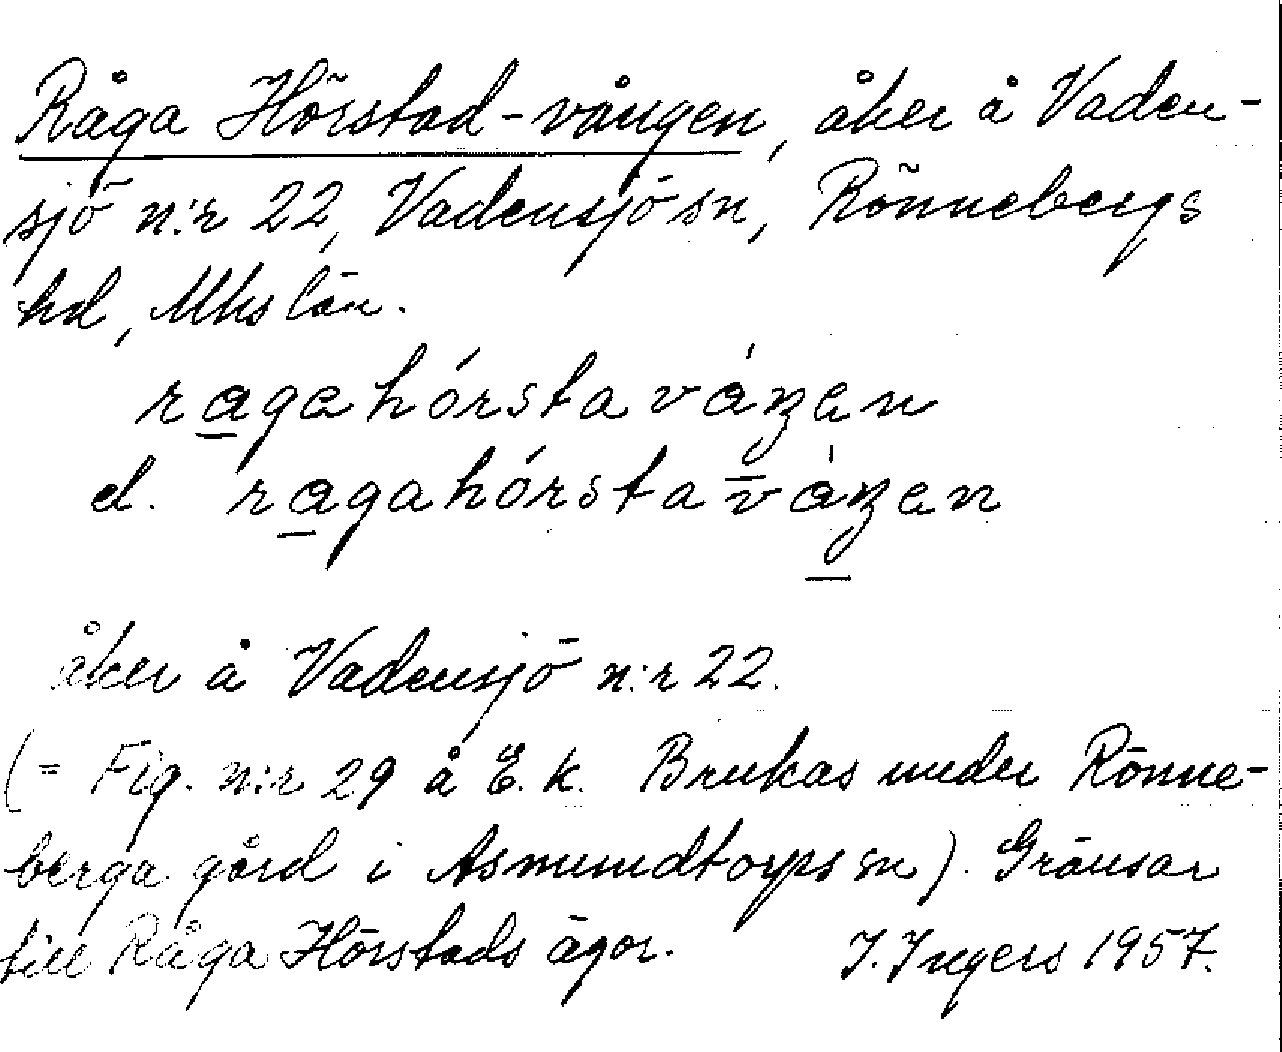 Råga Hörstad-vången, åker å Vaden-
sjö n:r 22, Vadensjö sn, Rönnebergs
hd, Mhs län.
ragahórstavåŋen
el. ragahórstavåŋen
åker å Vadensjö n:r 22.
(= Fig. n:r 29 å E.k. Brukas under Rönne-
berga gård i Asmundtorps sn). Gränsar
till Råga Hörstads ägor. I. Ingers 1957.